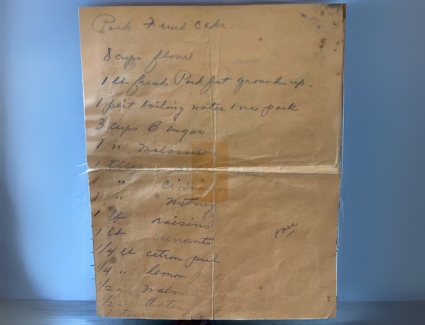 Pork Fruit Cake.
8 cups flour
1 lb fresh Pork fat ground up.
1 pint boiling water over pork
3 cups B sugar
1 " Molasses
1
" " Cinna
1 " " Nutmeg
1 lb raisins
1 lb currants
1/4 lb citron peel
1/4 " lemon "
1/2 "
1/2 " Dates
over